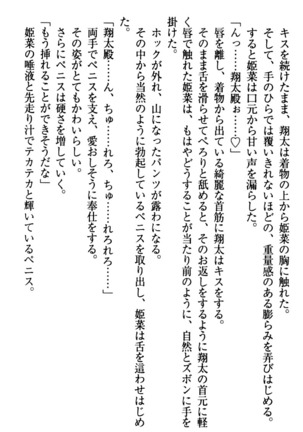 キスを続けたまま、翔太は着物の上から姫菜の胸に触れる。
そして、手のひらでは覆いきれないほどの、重量感のある膨らみを弄びはじめる。
すると姫菜は口元から甘い声を漏らした。
「んっ……翔太殿ぉ……♡」
唇を離し、着物から出ている綺麗な首筋に翔太はキスをする。
そのまま舌を滑らせてぺろりと舐めると、そのお返しをするように翔太の首元に軽
く唇で触れた姫菜は、もはやどうすることが当たり前のように、自然とズボンに手を
掛けた。
ホックが外れ、山になったパンツが露わになる。
その中から当然のように勃起しているペニスを取り出し、姫菜は舌を這わせはじめ
る。
「翔太殿……ん、ちゅ……れろ、ちゅ……れろれろ……」
両手でペニスを支え、愛おしそうに奉仕をする。
その姿がとてもかわいらしい。
さらにペニスは硬さを増していく。
「もう挿れることができそうだな」
姫菜の唾液と先走り汁でテカテカと輝いているペニス。